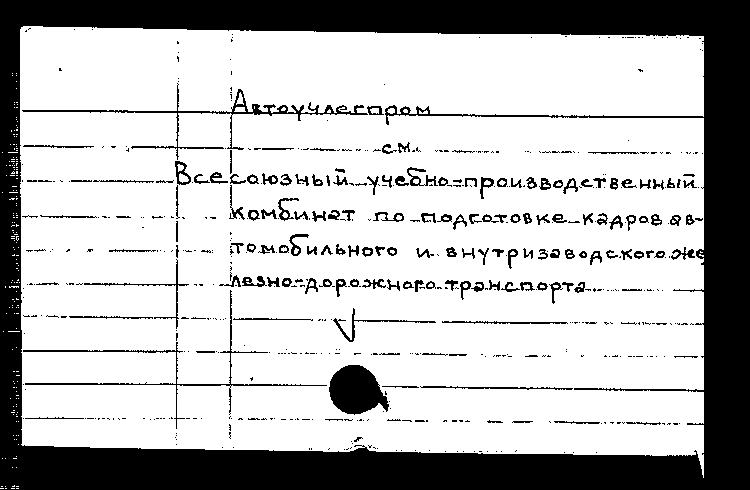 Автоучлеспром
см.
Всесоюзный учебно-производственный
комбинат по подготовке кадров ав-
томобильного и внутризаводского же
лезно-дорожного транспорта